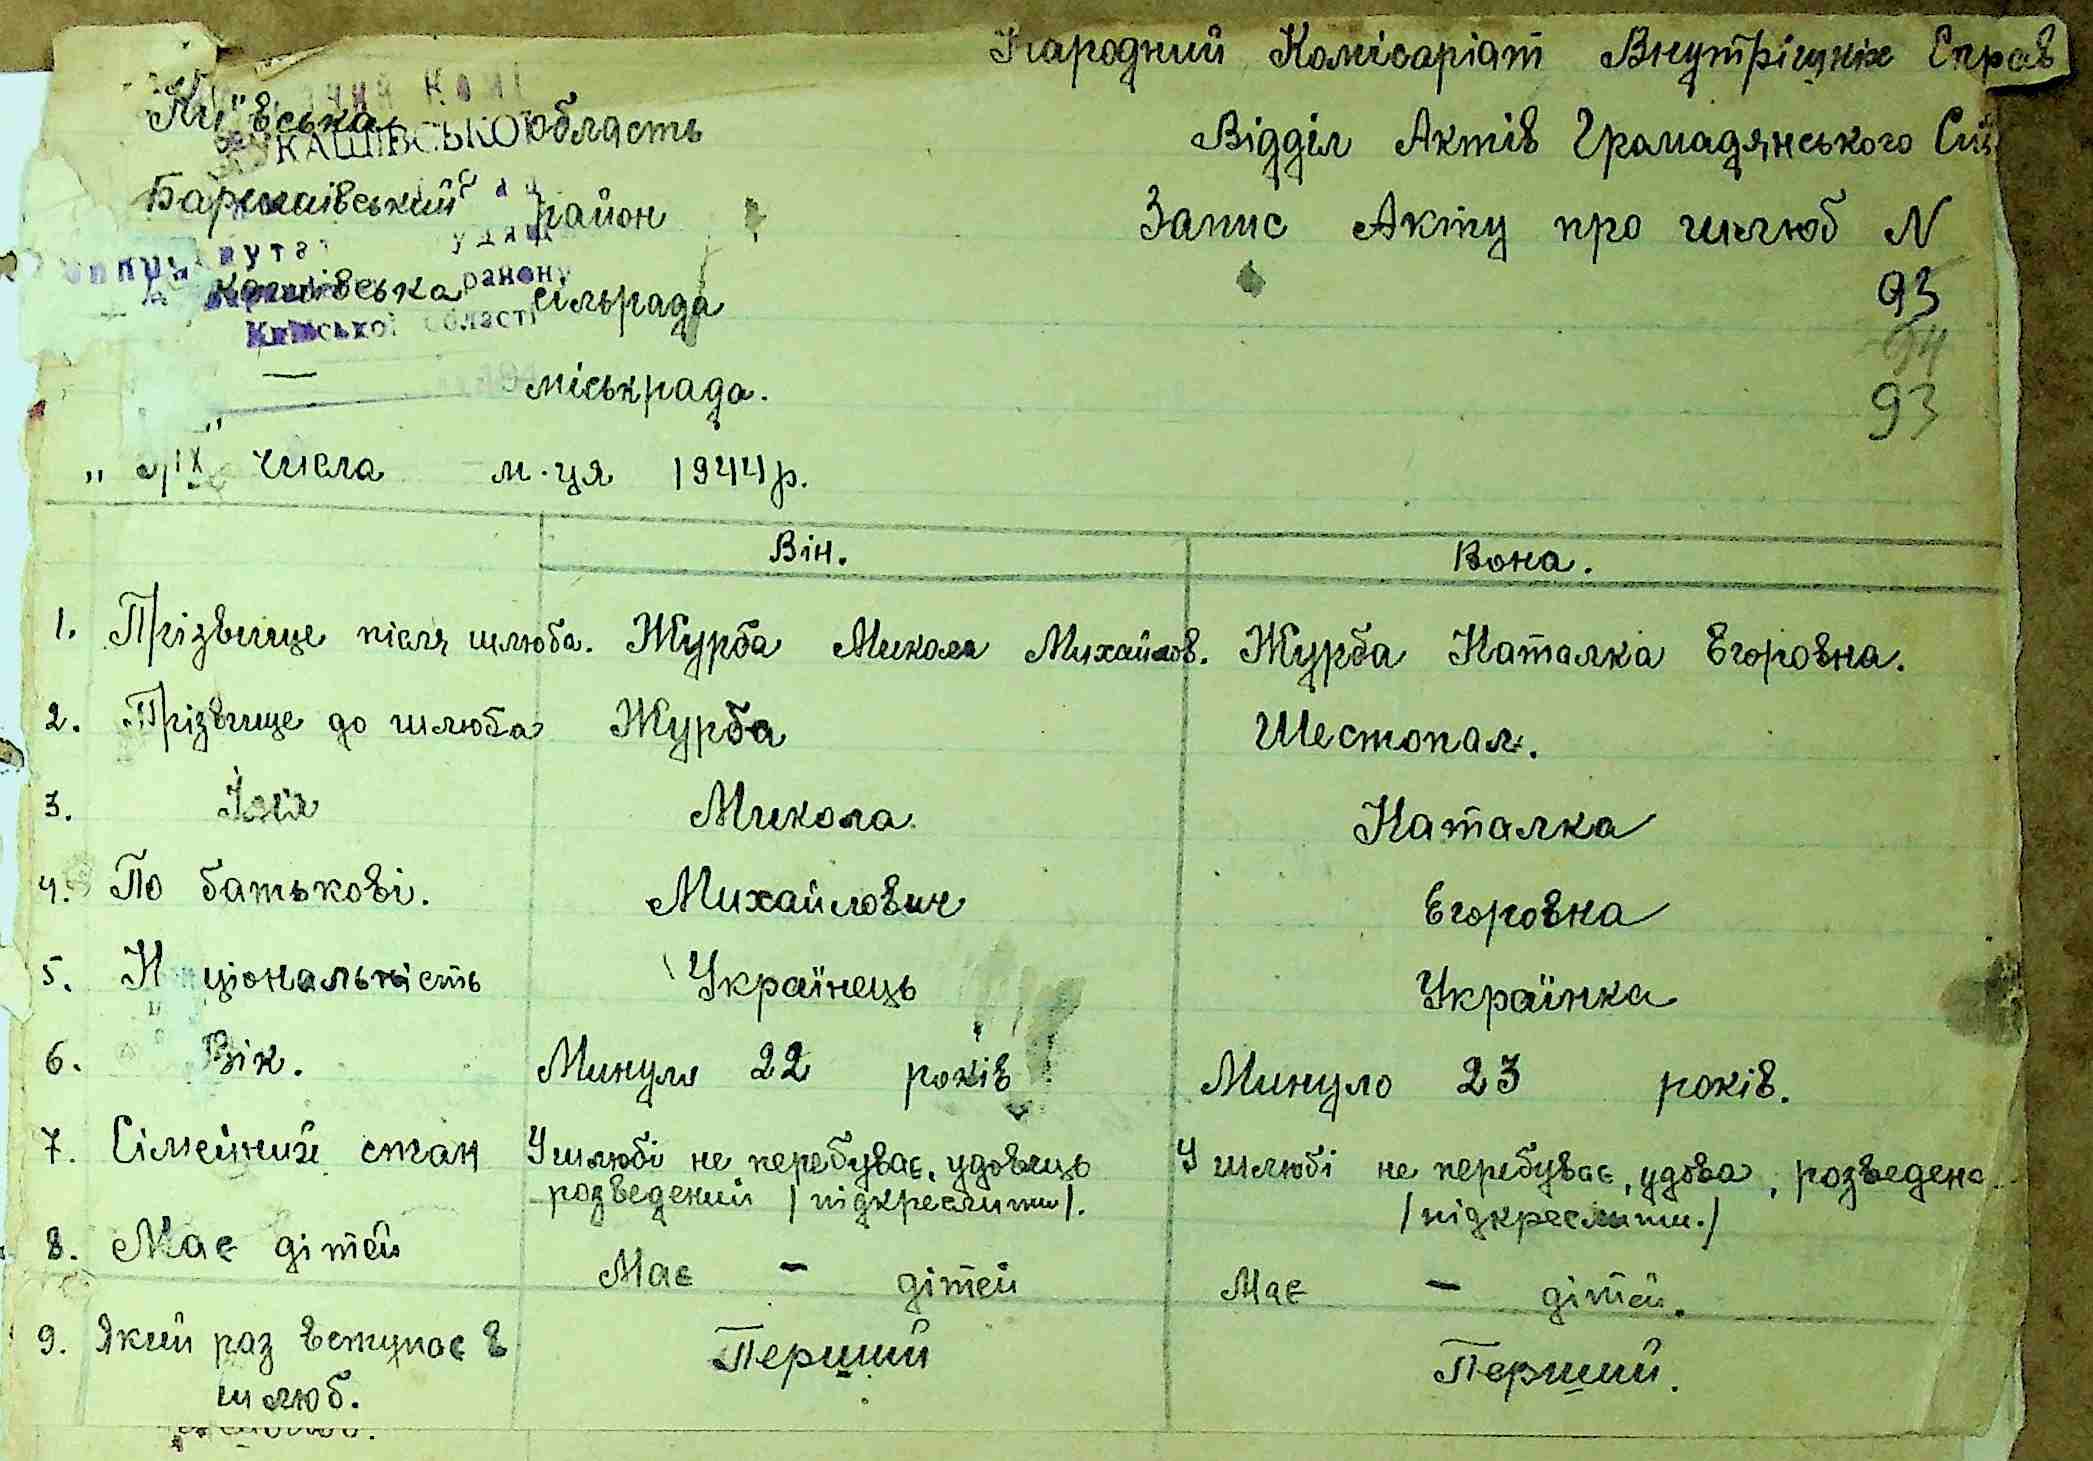 Народний Комісаріат Внутрішніх Справ
Київська область
Відділ Актів Громадянського
район
Запис Акту про шлюб N
93
сільрада
району
Київської області
94
міськрада.
93
числа м-ця 1944 р.
Він. Вона.
1. Прізвище після шлюба. Журба Микола Михайлов. Журба Наталка Егоровна.
2. Прізвище до шлюба Журба Шестопал.
3. Імя Микола Наталка
4. По батькові. Михайлович Егоровна
5. Національність Українець Українка
6. Вік. Минуло 22 років Минуло 23 років.
7. Сімейний стан У шлюбі не перебуває, удовець У шлюбі не перебуває, удова, розведена
розведений /підкреслити/. /підкреслити./
8. Має дітей Має - дітей Має - дітей.
9. Який раз вступає в Перший Перший.
шлюб.